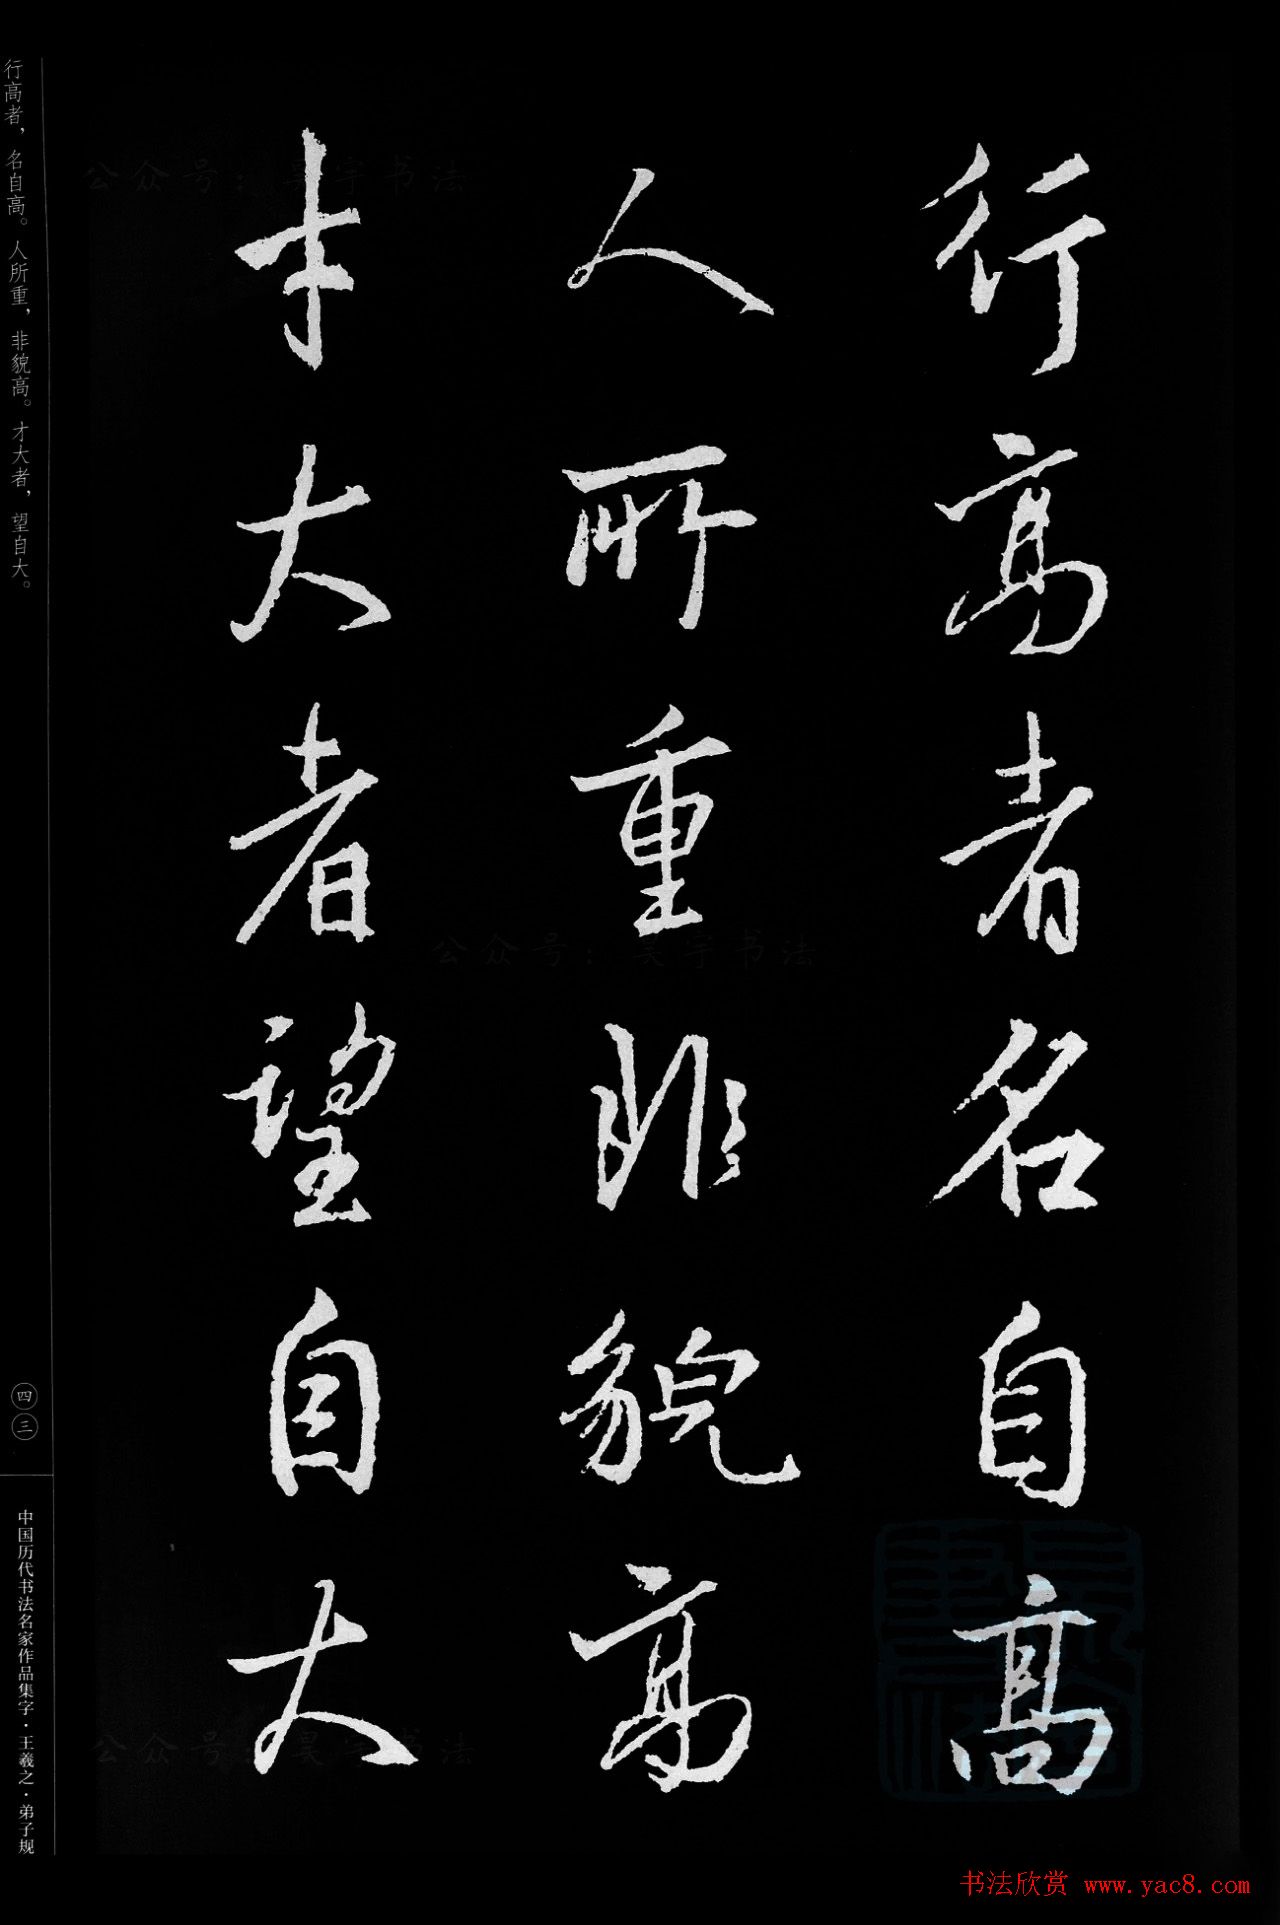 行高者名自高
人所重非貌高
才大者望自大
行高者，名自高。人所重，非貌高。才大者，望自大。
四三
中国历代书法名家作品集字·王羲之·弟子规
公众号：昊宇书法
公众号：昊宇书法
公众号：昊宇书法
书法欣赏 www.yac8.com